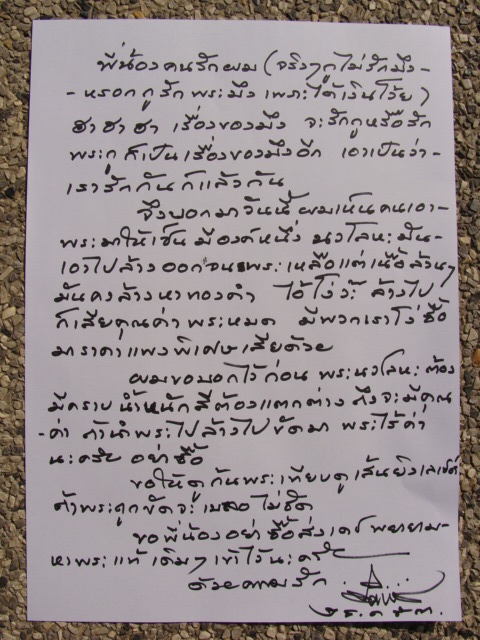 พี่น้องคนรักผม (จริงๆกูไม่รักมึง-
-หรอกกูรัก พระมึง เพราะได้เงินโว้ย)
ฮาฮาฮา เรื่องของมึง จะรักกูหรือรัก
พระกู ก็เป็นเรื่องของมึงอีก เอาเป็นว่า-
เรารักกันก็แล้วกัน
จึงบอกมาวันนี้ ผมเห็นคนเอา-
พระมาให้เช่น มีองค์หนึ่ง นวโลหะ มัน-
เอาไปล้างออกจนพระ เหลือแต่เนื้อล้วนๆ
มันคงล้างหาทองคำ ไอ้โง่ว่ะ ล้างไป
ก็เสียคุณค่า พระหมด มีพวกเราโง่ซื้อ
มาราคาแพงพิเศษเสียด้วย
ผมขอบอกไว้ก่อน พระนวโลหะต้อง
มีคราบน้ำหนักสีต้องแตกต่าง ถึงจะมีคุณ
-ค่า ถ้านำพระไปล้างไปขัดมา พระไร้ค่า
นะครับ อย่าซื้อ
ขอให้ดูก้นพระเทียบดูเส้นยิงเลเซอร์
ถ้าพระถูกขัดจะเบลอไม่ชัด
ขอพี่น้องอย่าซื้อสั่งเดช พยายาม-
หาพระแท้ เดิมๆ เข้าไว้นะครับ
ด้วยความรัก